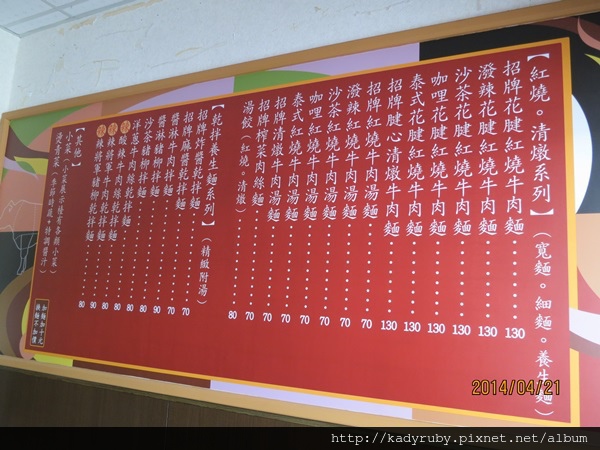 【紅燒。清燉系列】(寬麵。細麵。養生麵)
招牌花腱紅燒牛肉麵‧‧‧‧‧130
潑辣花腱紅燒牛肉麵‧‧‧‧‧130
沙茶花腱紅燒牛肉麵‧‧‧‧‧130
咖哩花腱紅燒牛肉麵‧‧‧‧‧130
泰式花腱紅燒牛肉麵‧‧‧‧‧130
招牌腱心清燉牛肉麵‧‧‧‧‧130
招牌紅燒牛肉湯麵‧‧‧‧‧70
潑辣紅燒牛肉湯麵‧‧‧‧‧70
沙茶紅燒牛肉湯麵‧‧‧‧‧70
咖哩紅燒牛肉湯麵‧‧‧‧‧70
泰式紅燒牛肉湯麵‧‧‧‧‧70
招牌清燉牛肉湯麵‧‧‧‧‧70
招牌榨菜肉絲麵‧‧‧‧‧70
湯餃(紅燒。清燉)‧‧‧‧‧80
【乾拌養生麵系列】(精緻附湯)
招牌炸醬乾拌麵‧‧‧‧‧70
招牌麻醬乾拌麵‧‧‧‧‧70
醬淋牛肉拌麵‧‧‧‧‧90
醬淋豬柳拌麵‧‧‧‧‧80
沙茶豬柳拌麵‧‧‧‧‧80
洋蔥牛肉絲拌麵‧‧‧‧‧80
酸辣牛肉絲乾拌麵‧‧‧‧‧80
辣將軍牛肉乾拌麵‧‧‧‧‧90
辣將軍豬柳乾拌麵‧‧‧‧‧80
【其他】
小菜(小菜展示檯有各類小菜)
燙青菜(季節時蔬。特調醬汁)
加麵加十元
換麵不加價
2014/04/21
http://kadyruby.pixnet.net/album